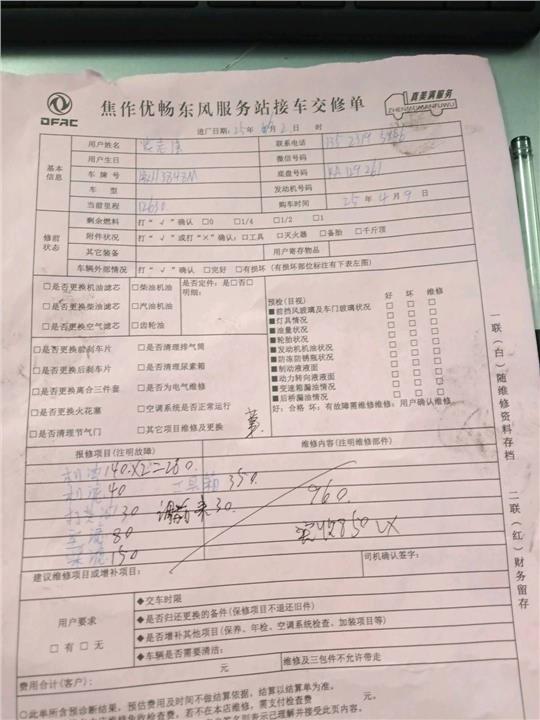 DFAC
焦作优畅东风服务站接车交修单
真美满服务
ZHENMEIMANFUWU
进厂日期: 25 年 月 2 日 时
基本信息
用户姓名 联系电话
用户生日 微信号码
车牌号 底盘号码 KA129261
车型 发动机号码
当前里程 12630 购车时间 25 年 4 月 9 日
修前状态
剩余燃料 打“√”确认 □0 □1/4 □1/2 □1
附件状况 打“√”或打“×”确认: □工具 □灭火器 □备胎 □千斤顶
其它装备 用户寄存物品
车辆外部情况 打“√”确认 □完好 □有损坏 (有损坏部位标注有下表左图)
□是否更换机油滤芯 □柴油机油 是否定件: 是□否□
明细:
□是否更换柴油滤芯 □汽油机油
□是否更换空气滤芯 □齿轮油
□是否更换前刹车片 □是否清理排气筒
□是否更换后刹车片 □是否清理尿素箱
□是否更换离合三件套 □是否为电气维修
□是否更换火花塞 □空调系统是否正常运行
□是否清理节气门 □其它项目维修及更换
预检(目视) 好 坏 维修
■前挡风玻璃及车门玻璃状况 □ □ □
■灯具情况 □ □ □
■油量状况 □ □ □
■轮胎状况 □ □ □
■发动机机油状况 □ □ □
■防冻防锈瓶状况 □ □ □
■制动液液面 □ □ □
■动力转向液液面 □ □ □
■变速箱漏油情况 □ □ □
■后桥漏油情况 □ □ □
好: 合格 坏: 有故障需维修维修: 用户确认维修
报修项目(注明故障) 维修内容(注明维修部件)
140×2=280
40 350
30 30 960
80 实收850
150
建议维修项目或增补项目: 司机确认签字:
用户要求
□有 □无
◆交车时限
◆是否归还更换的备件(保修项目不退还旧件)
◆是否增补其他项目(保养、年检、空调系统检查、加装项目等)
◆车辆是否需要清洁:
费用合计(客户): 元 维修及三包件不允许带走
○此单所含预诊断结果, 预估费用及时间不做结算依据, 结算以结算单为准。
若不在本店维修, 需支付检查费 元。
签字则表示已理解并接受此页内容。
一联(白)随维修资料存档 二联(红)财务留存